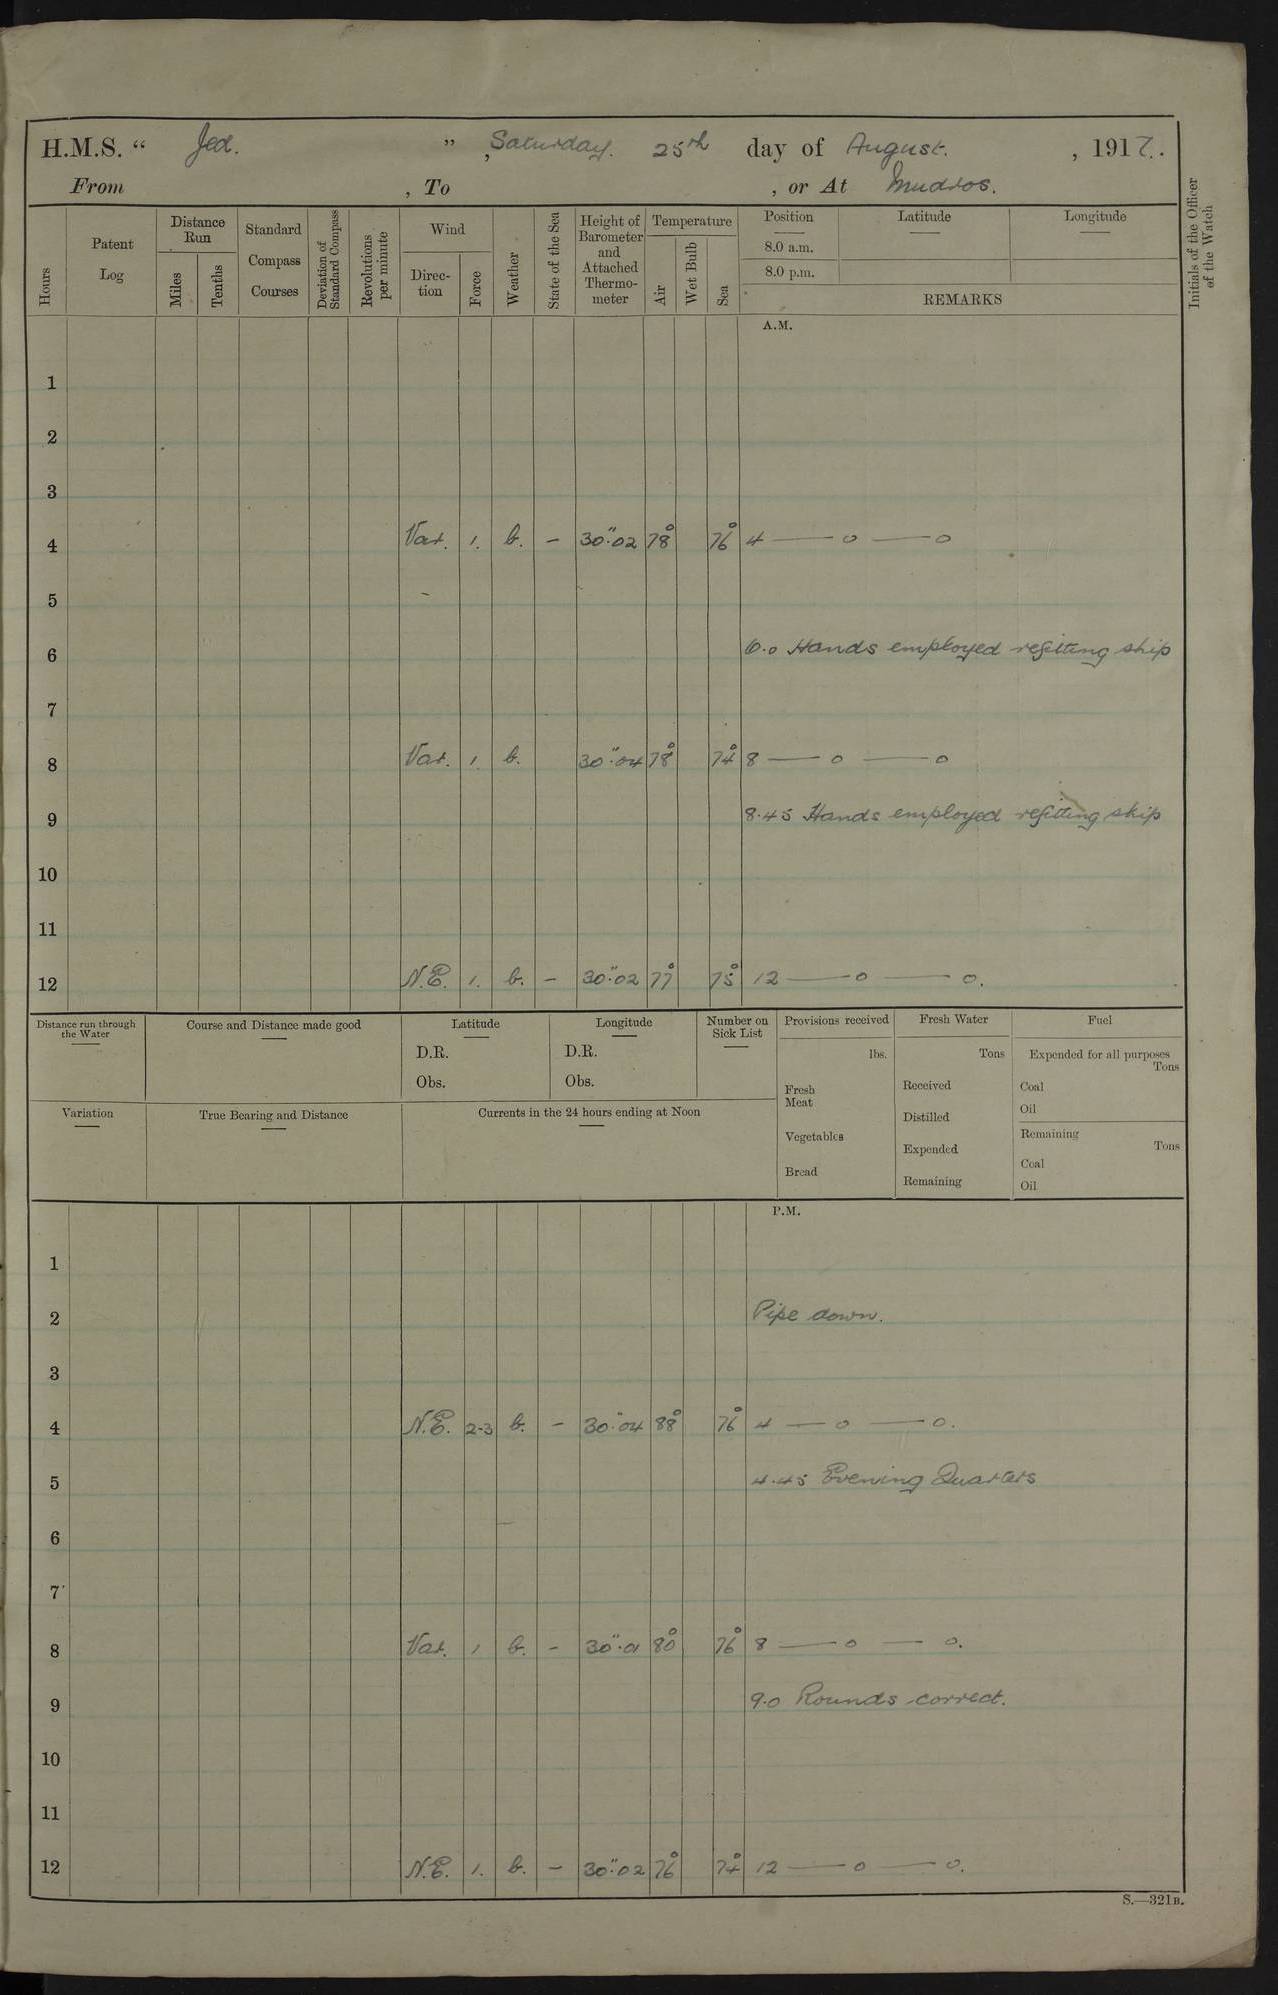 H.M.S. “ Jed. ” , Saturday. 25th day of August. , 1917.
From , To , or At Mudros.
Hours
Patent Log
Distance Run
Miles
Tenths
Standard Compass Courses
Deviation of Standard Compass
Revolutions per minute
Wind
Direc-tion
Force
Weather
State of the Sea
Height of Barometer and Attached Thermo-meter
Temperature
Air
Wet Bulb
Sea
Position
8.0 a.m.
8.0 p.m.
Latitude
Longitude
REMARKS
Initials of the Officer of the Watch
A.M.
1
2
3
4 Var. 1. b. – 30"·02 78° 76° 4 — o — o
5
6 6.0 Hands employed refitting ship
7
8 Var. 1. b. 30"·04 78° 74° 8 — o — o
9 8.45 Hands employed refitting ship
10
11
12 N.E. 1. b. – 30"·02 77° 75° 12 — o — o.
Distance run through the Water
Course and Distance made good
Latitude
D.R.
Obs.
Longitude
D.R.
Obs.
Number on Sick List
Provisions received
lbs.
Fresh Meat
Vegetables
Bread
Fresh Water
Tons
Received
Distilled
Expended
Remaining
Fuel
Expended for all purposes
Tons
Coal
Oil
Remaining
Tons
Coal
Oil
Variation
True Bearing and Distance
Currents in the 24 hours ending at Noon
P.M.
1
2 Pipe down.
3
4 N.E. 2-3 b. – 30"·04 88° 76° 4 — o — o.
5 4.45 Evening Quarters
6
7
8 Var. 1 b. – 30"·01 80° 76° 8 — o — o.
9 9.0 Rounds correct.
10
11
12 N.E. 1. b. – 30"·02 76° 74° 12 — o — o.
S.—321B.